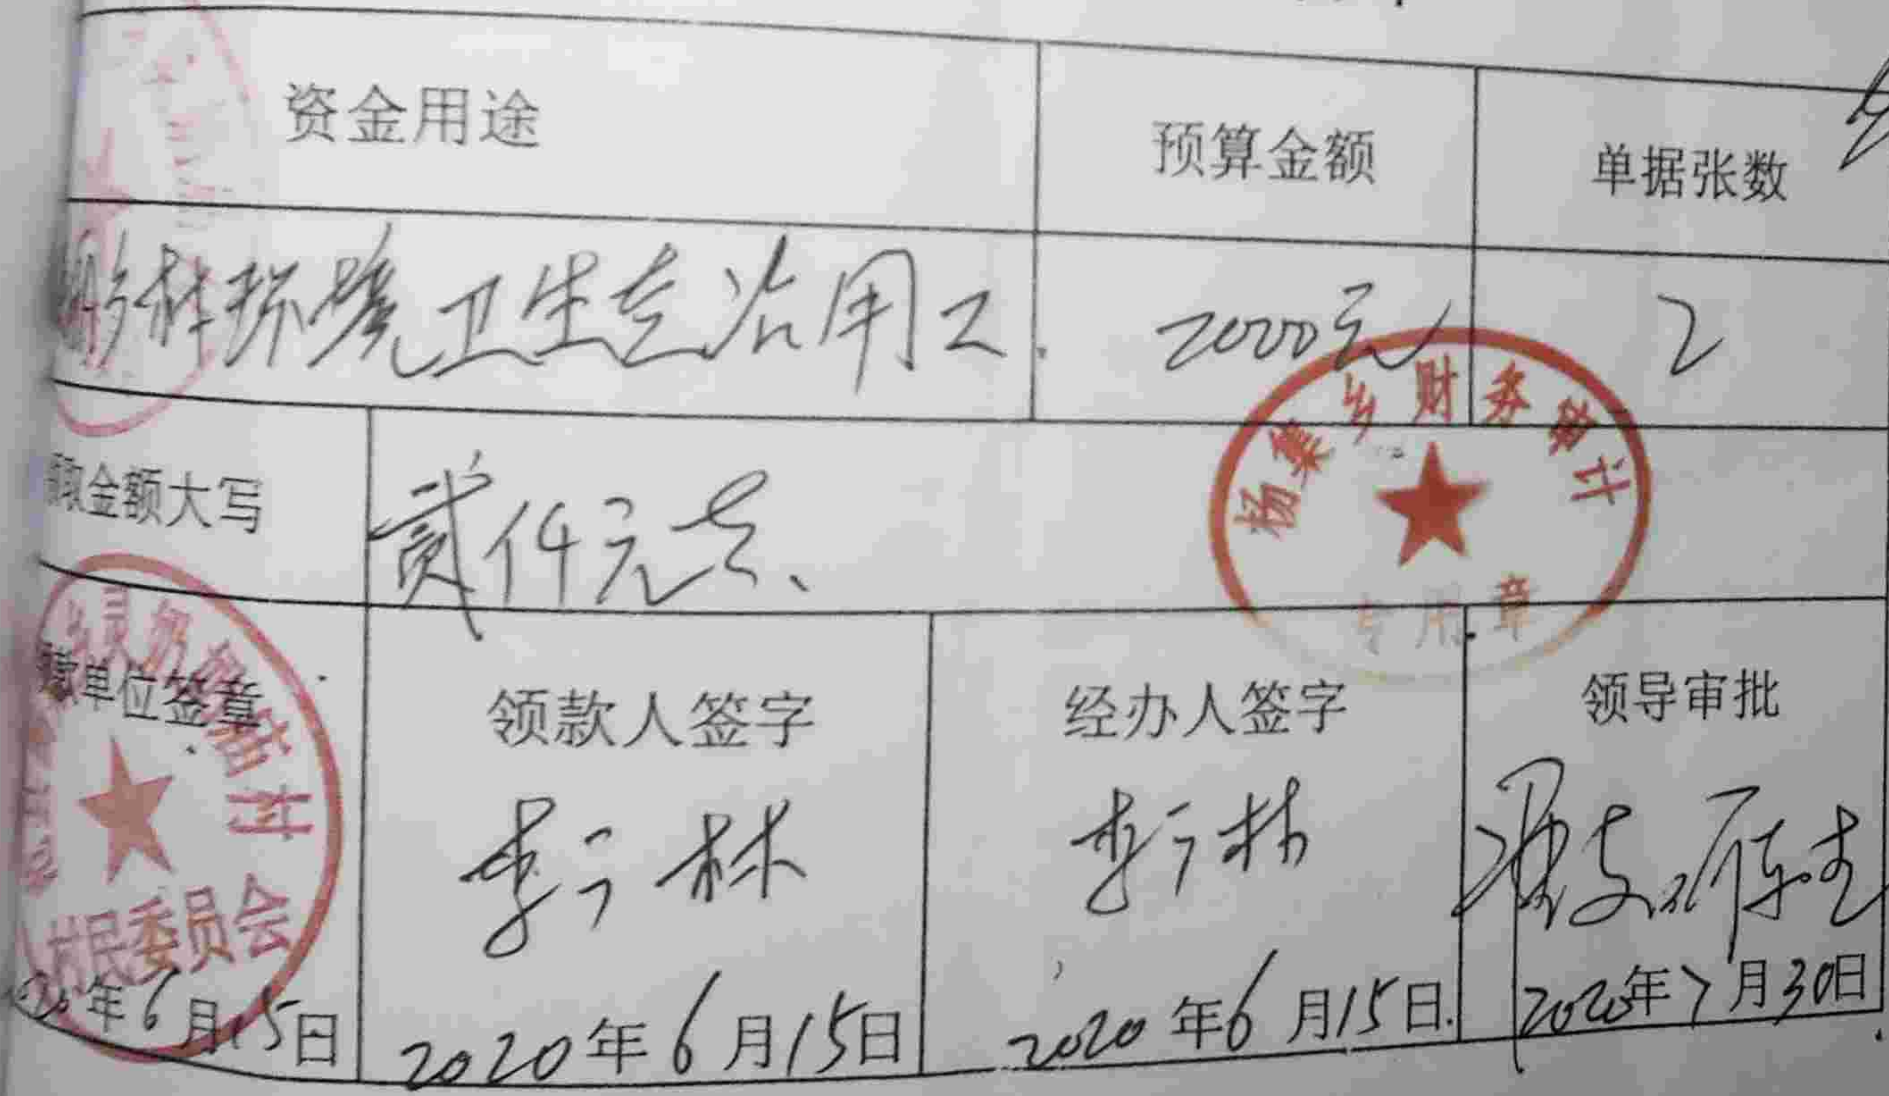 资金用途 预算金额 单据张数
环境卫生 治用工. 2000元 2
取金额大写 贰仟元
杨集乡财务审计
专用章
单位签章 领款人签字 经办人签字 领导审批
村
村民委员会
李广林 李广林
年6月15日 2020年6月15日 2020年6月15日. 2020年7月30日